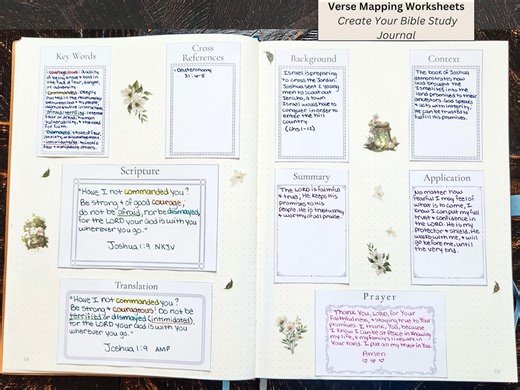 Verse Mapping Worksheets
Create Your Bible Study
Journal
Key Words
Cross
References
- Deuteronomy
31:6-8
Background
Israel is preparing
to cross the Jordan.
Joshua sent 2 young
men to scout out
Jericho, a town
Israel would have to
conquer in order to
enter the Hill
Country.
(Chs 1-12)
Context
The book of Joshua
demonstrates how
God brought the
Israelites into the
land promised to their
ancestors. God speaks
& acts with integrity.
He can be trusted to
fulfill His promises.
Scripture
"Have I not commanded you?
Be strong & of good courage;
do not be afraid, nor be dismayed,
for the LORD your God is with you
wherever you go."
Joshua 1:9 NKJV
Summary
The LORD is faithful
& true; He keeps His
promises to His
people. He is trustworthy
& worthy of all praise.
Application
No matter how
fearful I may feel of
what is to come, I
know I can put my full
trust & confidence in
the LORD. He is my
protector & shield. He
walks with me, & will
go before me, until
the very end.
Translation
"Have I not commanded you?
Be strong & courageous! Do not be
terrified or dismayed (intimidated),
for the LORD your God is with you
wherever you go."
Joshua 1:9 AMP
Prayer
Thank You, LORD, for Your
faithfulness, & staying true to Your
promises. I thank You, because
I know I can be at peace in knowing
my life, & my family's lives are in
Your hand. I put all my trust in You.
Amen